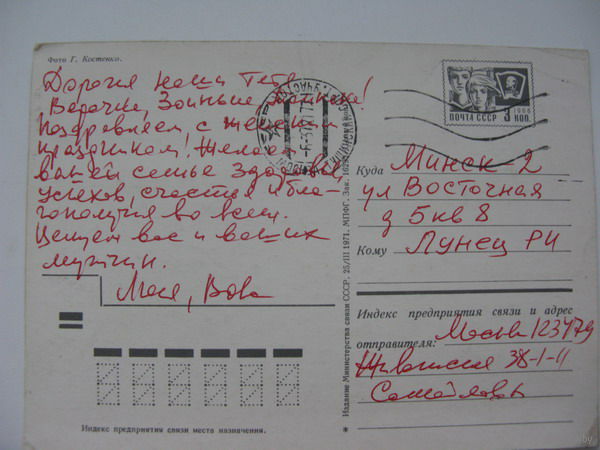 Фото Г. Костенко.
Дорогие наши Тётя
Верочка, Зоинька,
Поздравляем с женским
праздником! Желаем
вашей семье здоровья,
успехов, счастья и бла-
гополучия во всем.
Целуем вас и ваших
мужчин.
Вова
Индекс предприятия связи места назначения.
Издание Министерства связи СССР. 25/III 1971. МПФГ. Зак.
1966
ПОЧТА СССР
Куда Минск 2
ул Восточная
д 5 кв 8
Кому Лунец РИ
Индекс предприятия связи и адрес
отправителя: Москва 123479
38-1-11